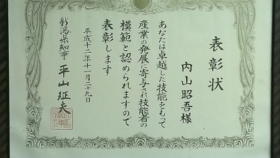 表彰状
内山昭吾様
あなたは卓越した技能をもって
産業の発展に寄与され技能者の
模範と認められますので
表彰します
平成十二年十一月二十九日
新潟県知事 平山征夫